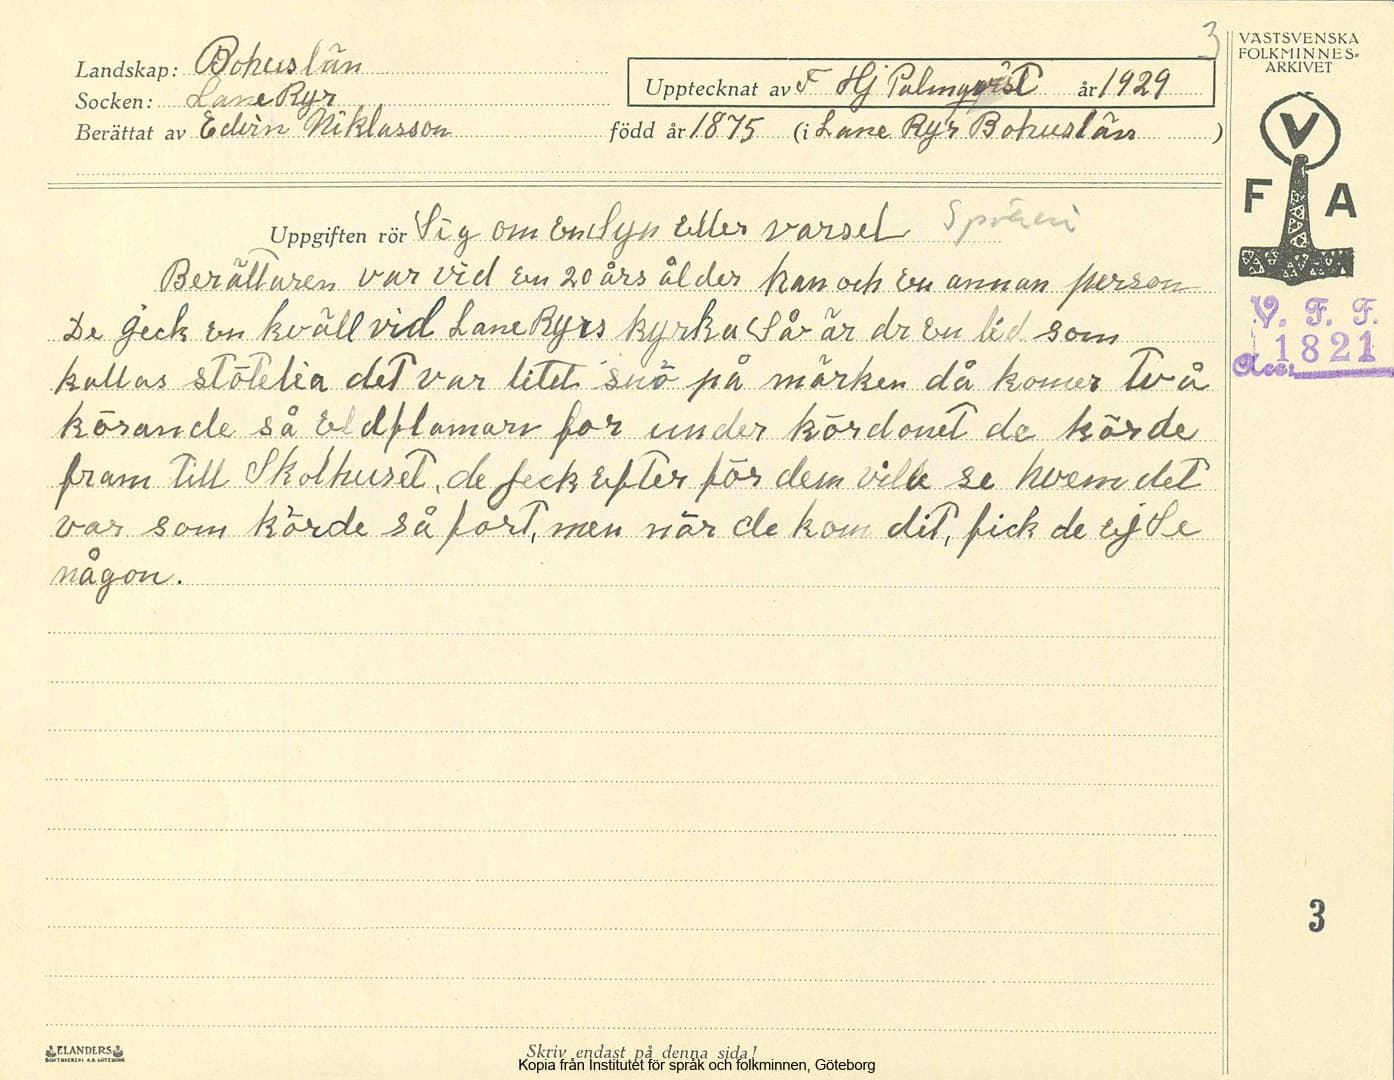 3
VÄSTSVENSKA
FOLKMINNES-
ARKIVET
Landskap: Bohuslän
Socken: Lane Ryr
Upptecknat av F Hj Palmqvist år 1929
Berättat av Edvin Niklasson född år 1875 (i Lane Ryr Bohuslän )
V
F A
Uppgiften rör Sig om en Syn eller varsel Spöken
Berättaren var vid en 20 års ålder han och en annan person
De geck en kväll vid Lane Ryrs kyrka Så är dr en led som
kallas det var litet snö på märken då komer två
körande så Eldflamarn for under kördonet de körde
fram till Skolhuset, de feck efter för dem ville se hvem det
var som körde så fort, men när de kom dit, fick de ej Se
någon.
V. F. F.
1821
Acc:
3
ELANDERS
BOKTRYCKERI A.B. GÖTEBORG
Skriv endast på denna sida!
Kopia från Institutet för språk och folkminnen, Göteborg